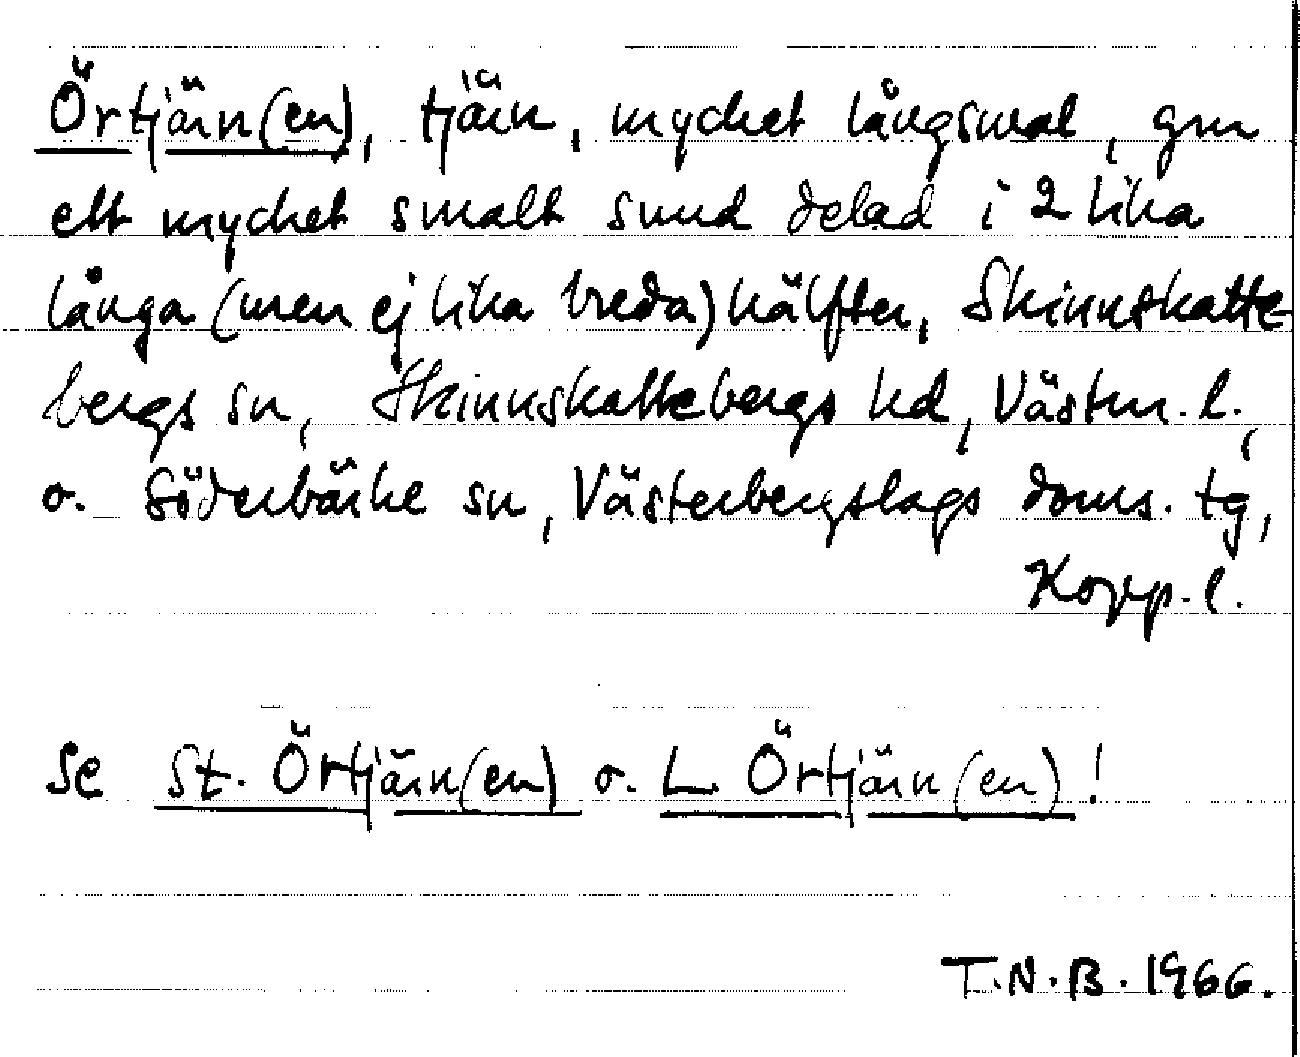 Örtjärn(en), tjärn, mycket långsmal, gm
ett mycket smalt sund delad i 2 lika
långa (men ej lika breda) hälfter, Skinnskatte-
bergs sn, Skinnskattebergs hd, Västm. l.,
o. Söderbärke sn, Västerbergslags doms. tg,
Kopp. l.
Se St. Örtjärn(en) o. L. Örtjärn(en)!
T.N.B. 1966.